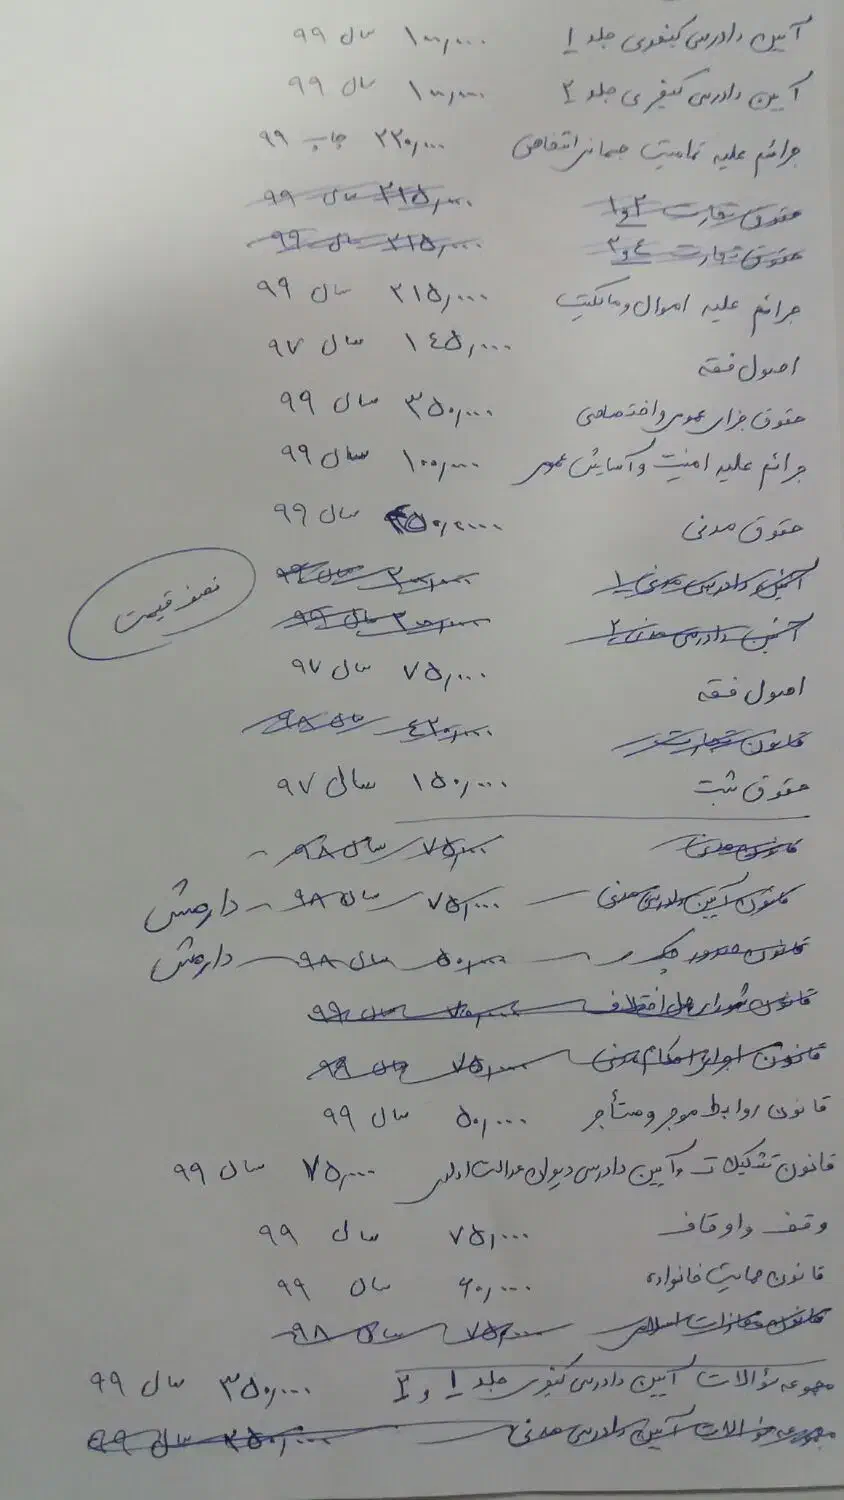 آیین دادرسی کیفری جلد ۱ ۱۰۰,۰۰۰ سال ۹۹
آیین دادرسی کیفری جلد ۲ ۱۰۰,۰۰۰ سال ۹۹
جرائم علیه تمامیت جسمانی اشخاص ۲۲۰,۰۰۰ چاپ ۹۹
حقوق تجارت ۱ و ۲ ۲۱۵,۰۰۰ سال ۹۹
حقوق تجارت ۳ و ٤ ۲۱۵,۰۰۰ سال ۹۹
جرائم علیه اموال و مالکیت ۲۱۵,۰۰۰ سال ۹۹
اصول فقه ۱٤۵,۰۰۰ سال ۹۷
حقوق جزای عمومی و اختصاصی ۳۵۰,۰۰۰ سال ۹۹
جرائم علیه امنیت و آسایش عمومی ۱۰۰,۰۰۰ سال ۹۹
حقوق مدنی ۵۰,۰۰۰ سال ۹۹
آیین دادرسی مدنی ۱ ۲۰۰,۰۰۰ سال ۹۹
نصف قیمت
آیین دادرسی مدنی ۲ ۲۰۰,۰۰۰ سال ۹۹
اصول فقه ۷۵,۰۰۰ سال ۹۷
قانون تجارت ٤۲۰,۰۰۰ سال ۹۸
حقوق ثبت ۱۵۰,۰۰۰ سال ۹۷
قانون مدنی ۷۵,۰۰۰ سال ۹۸
قانون آیین دادرسی مدنی ۷۵,۰۰۰ سال ۹۸ دارمش
قانون صدور چک ۵۰,۰۰۰ سال ۹۸ دارمش
قانون شورای حل اختلاف ۷۰,۰۰۰ سال ۹۹
قانون اجرای احکام مدنی ۷۵,۰۰۰ سال ۹۹
قانون روابط موجر و مستأجر ۵۰,۰۰۰ سال ۹۹
قانون تشکیلات و آیین دادرسی دیوان عدالت اداری ۷۵,۰۰۰ سال ۹۹
وقف و اوقاف ۷۵,۰۰۰ سال ۹۹
قانون حمایت خانواده ۶۰,۰۰۰ سال ۹۹
قانون مجازات اسلامی ۷۵,۰۰۰ سال ۹۸
مجموعه سؤالات آیین دادرسی کیفری جلد ۱ و ۲ ۳۵۰,۰۰۰ سال ۹۹
مجموعه سؤالات آیین دادرسی مدنی ۲۵۰,۰۰۰ سال ۹۹